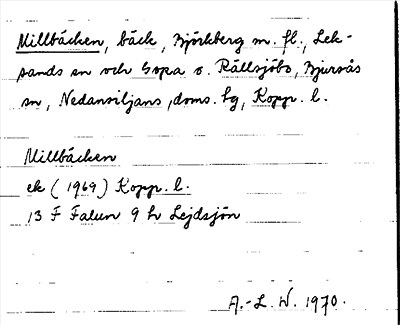 Millbäcken, bäck, Björkberg m. fl., Lek-
sands sn och Sopa o. Rällsjöbo, Bjursås
sn, Nedansiljans, doms. tg, Kopp. l.
Millbäcken
ek (1969) Kopp. l.
13 F Falun 9 h Lejdsjön
A.-L. W. 1970.